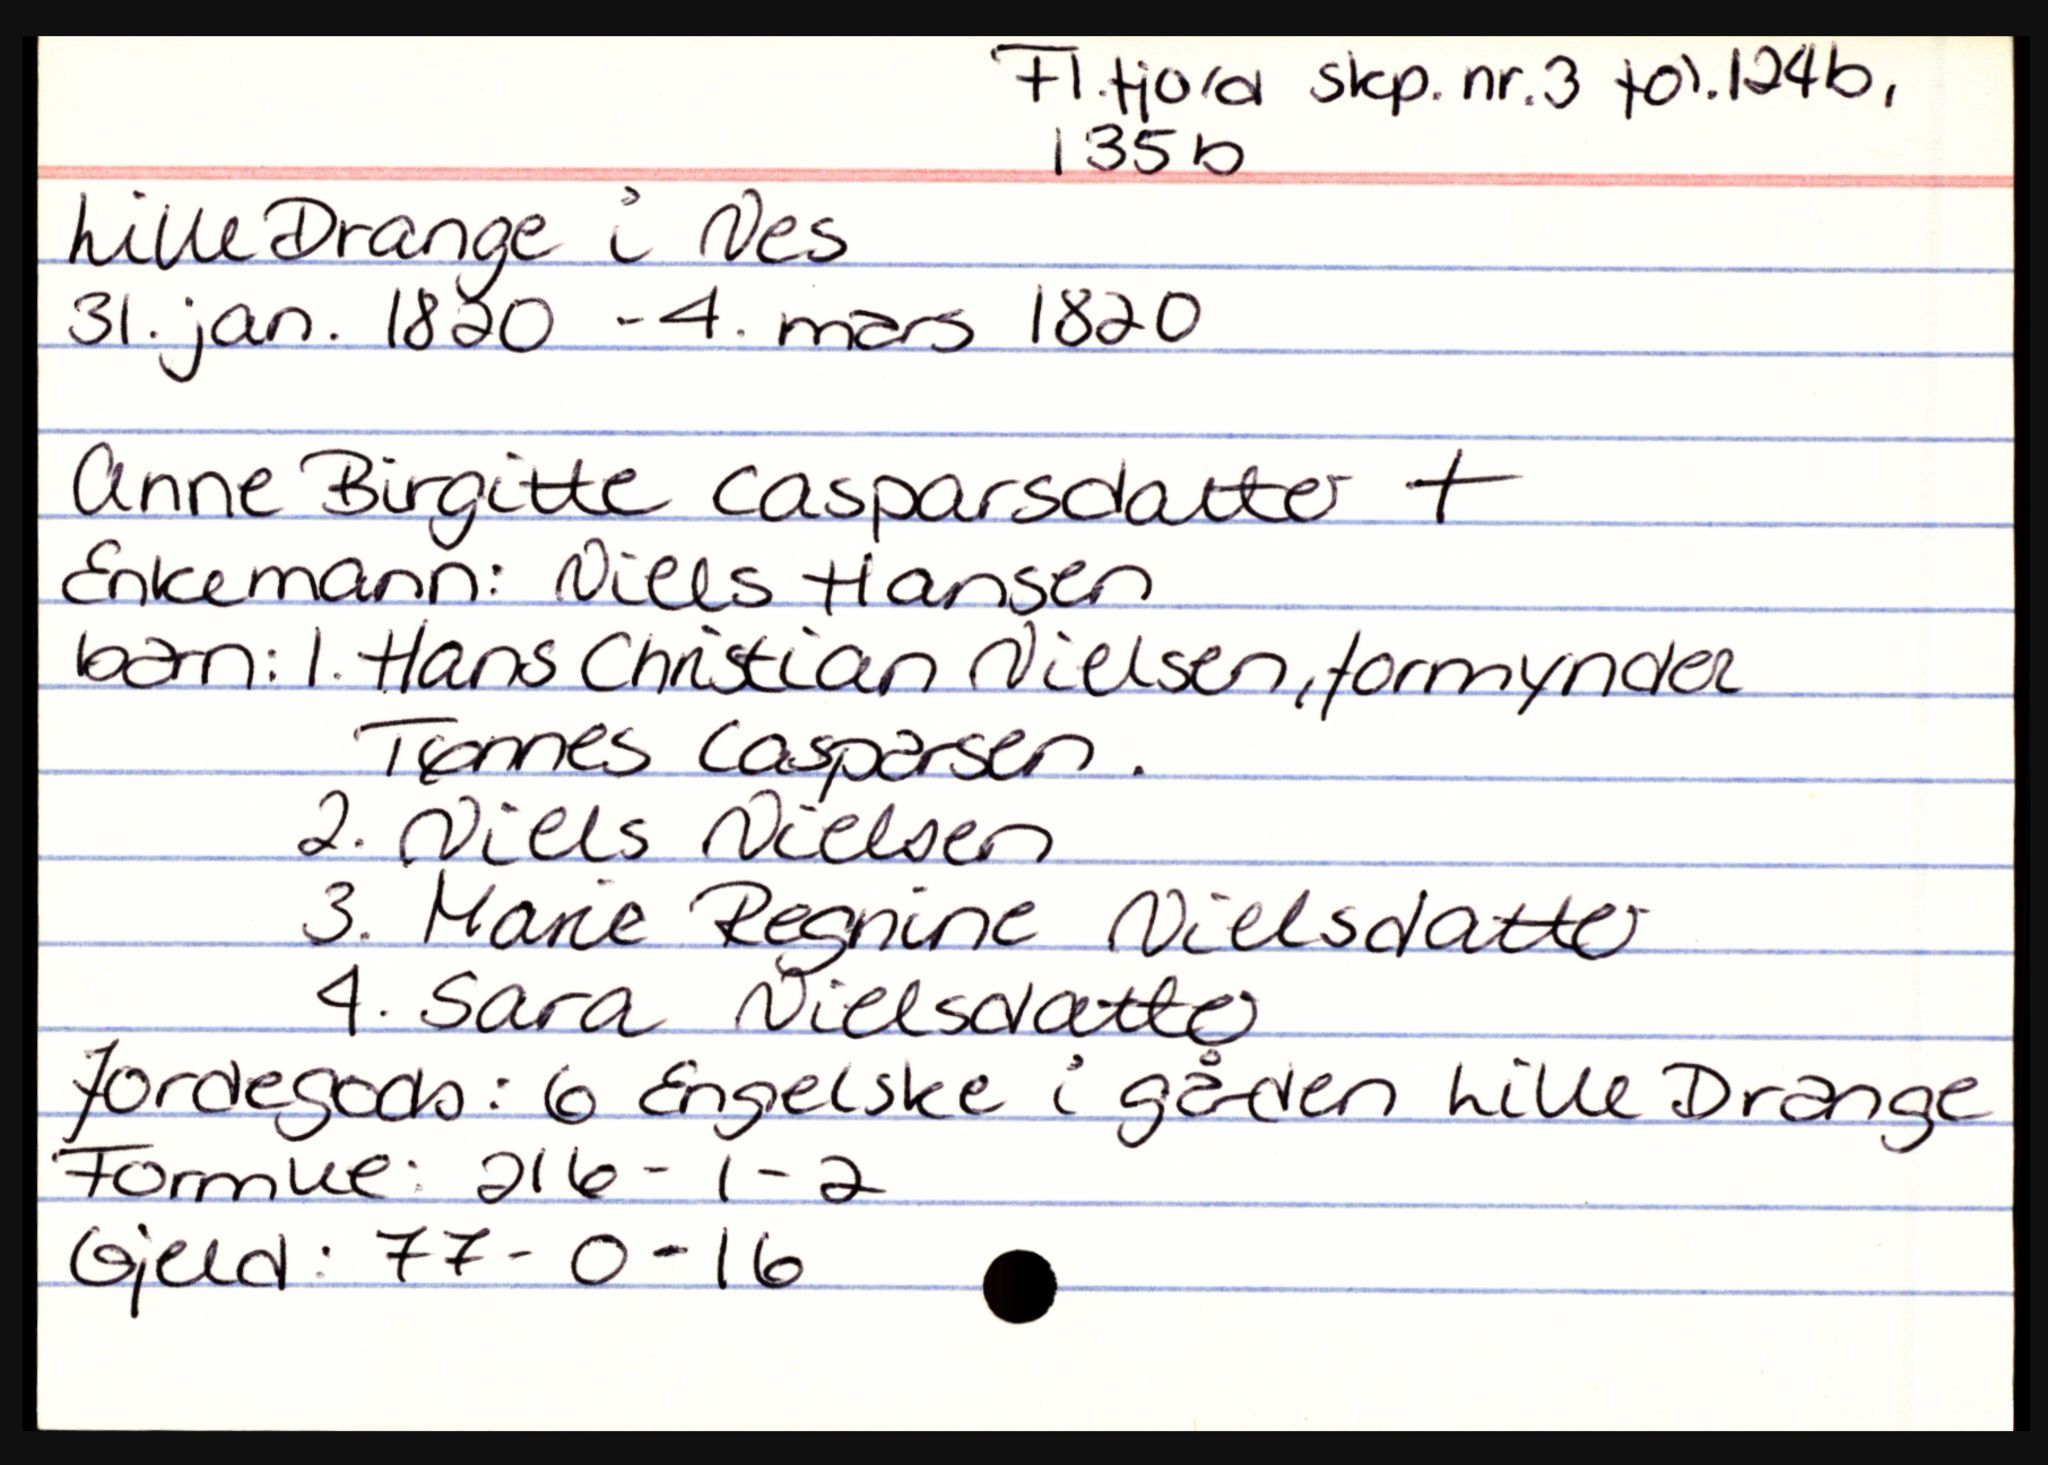 Fl.fjord skp. nr.3 fol.124b,
135b
Lille Drange i Nes
31. jan. 1820 - 4. mars 1820
Anne Birgitte Casparsdatter +
Enkemann: Niels Hansen
barn: 1. Hans Christian Nielsen, formynder
Tønnes Casparsen.
2. Niels Nielsen
3. Marie Regnine Nielsdatter
4. Sara Nielsdatter
Jordegods: 6 Engelske i gården Lille Drange
Formue: 216 - 1 - 2
Gjeld: 77 - 0 - 16